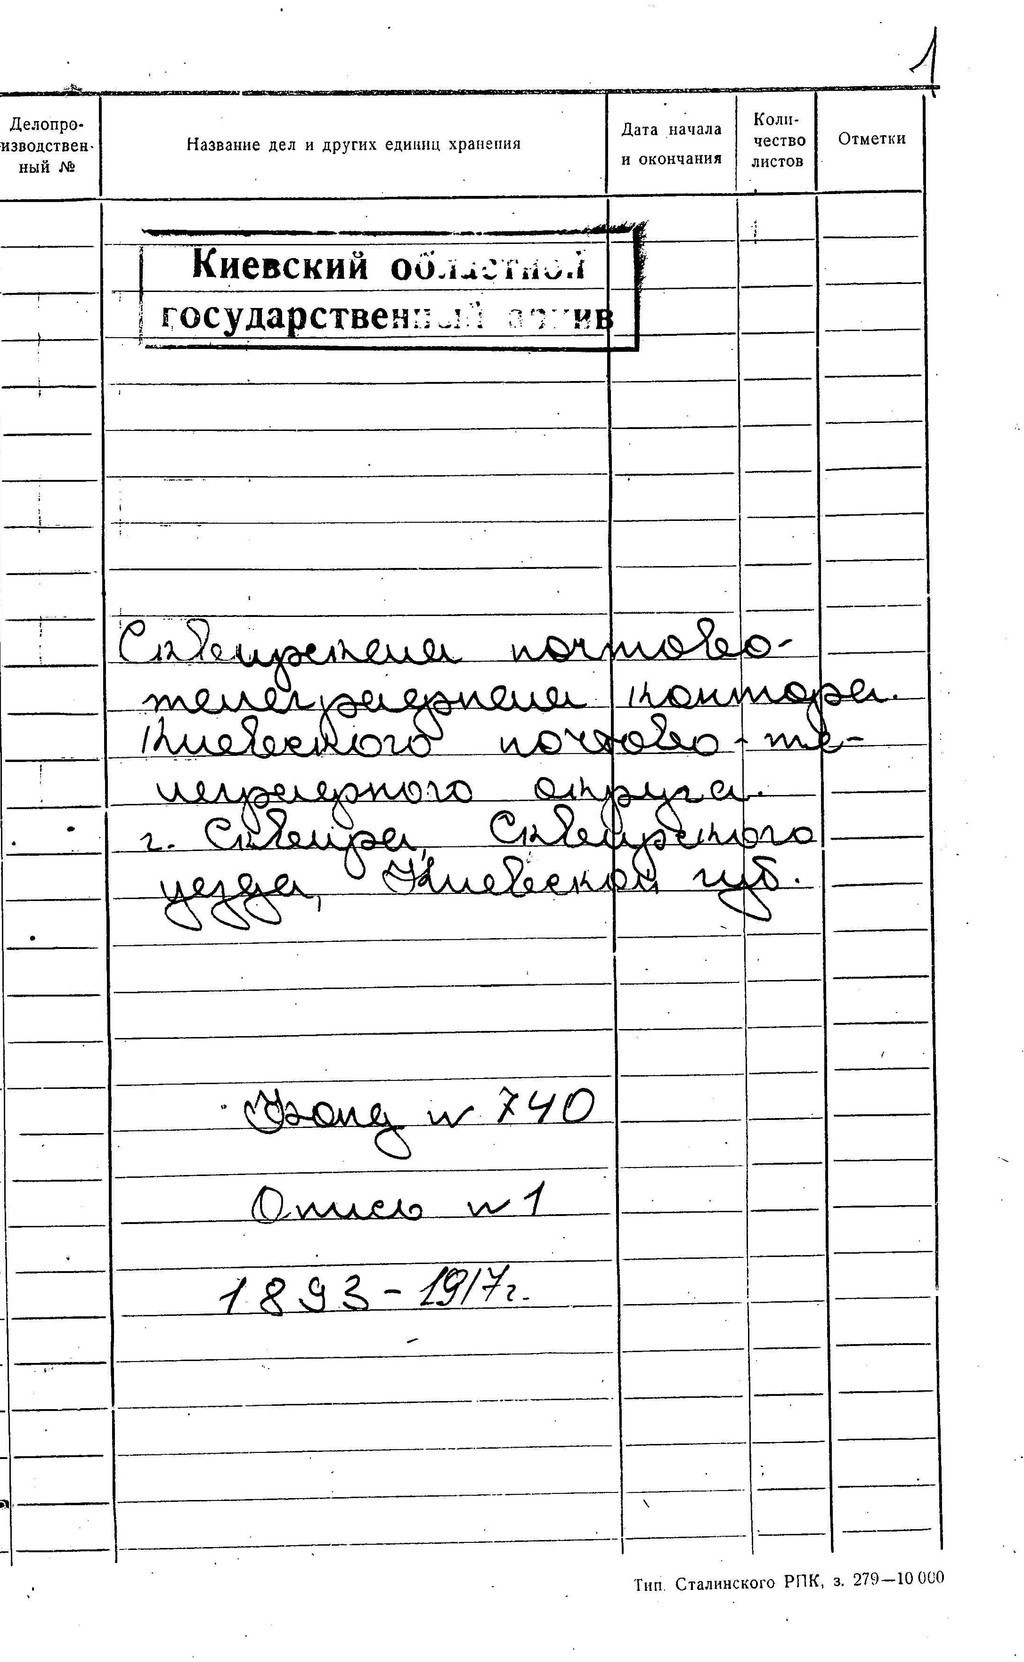 1
Делопро-
изводствен-
ный №
Название дел и других единиц хранения
Дата начала
и окончания
Коли-
чество
листов
Отметки
Киевский областной
государственный архив
Сквирская почтово-
телеграфная контора.
Киевского почтово-те-
леграфного округа.
г. Сквира, Сквирского
уезда, Киевской губ.
Фонд № 740
Опись № 1
1893-1917г.
Тип. Сталинского РПК, з. 279—10 000